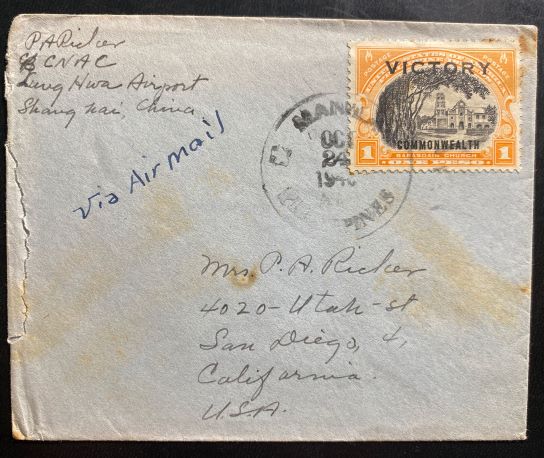 P.A. Ricker
% CNAC
Lung Hwa Airport
Shanghai, China
Via Air Mail
VICTORY
COMMONWEALTH
1 BARASOAIN CHURCH 1
ONE PESO
MANIL
OCT
26
194
PINES
Mrs. P. A. Ricker
4020-Utah-st
San Diego, 4,
California.
U.S.A.